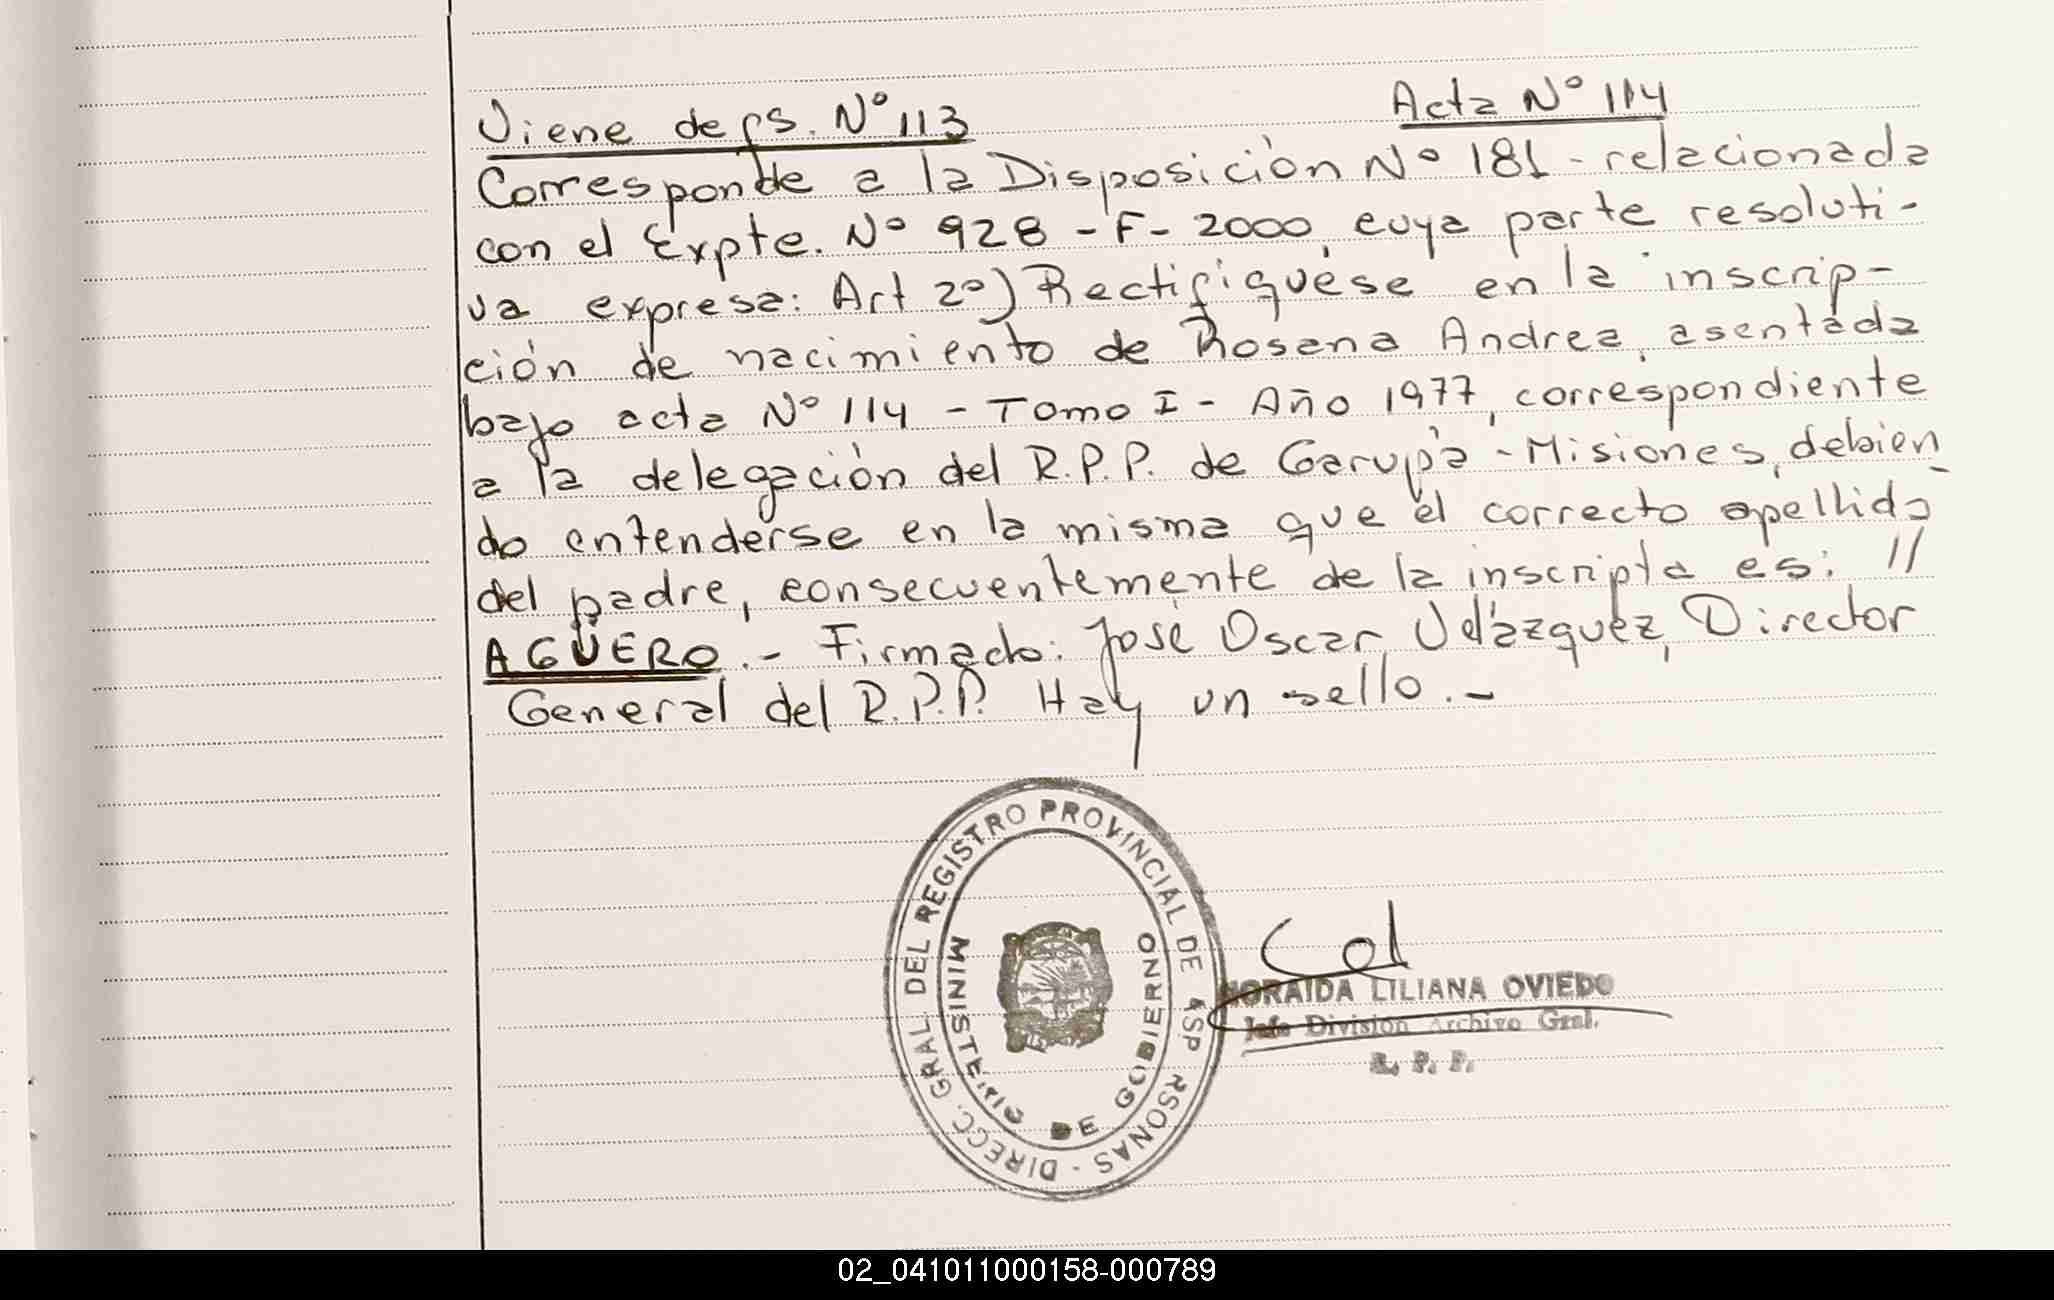 Viene de fs. Nº 113
Acta Nº 114
Corresponde a la Disposición Nº 181 - relacionada
con el Expte. Nº 928 - F - 2000, cuya parte resoluti-
va expresa: Art 2º) Rectifíquese en la inscrip-
ción de nacimiento de Rosana Andrea, asentada
bajo acta Nº 114 - Tomo I - Año 1977, correspondiente
a la delegación del R.P.P. de Garupá - Misiones, debien
do entenderse en la misma que el correcto apellido
del padre, consecuentemente de la inscripta es: //
AGÜERO.- Firmado: José Oscar Velázquez, Director
General del R.P.P. Hay un sello.-
DIRECC. GRAL. DEL REGISTRO PROVINCIAL DE RSONAS
MINISTERIO DE GOBIERNO
LILIANA OVIEDO
Jefe División Archivo Gral.
R. P. P.
02_041011000158-000789